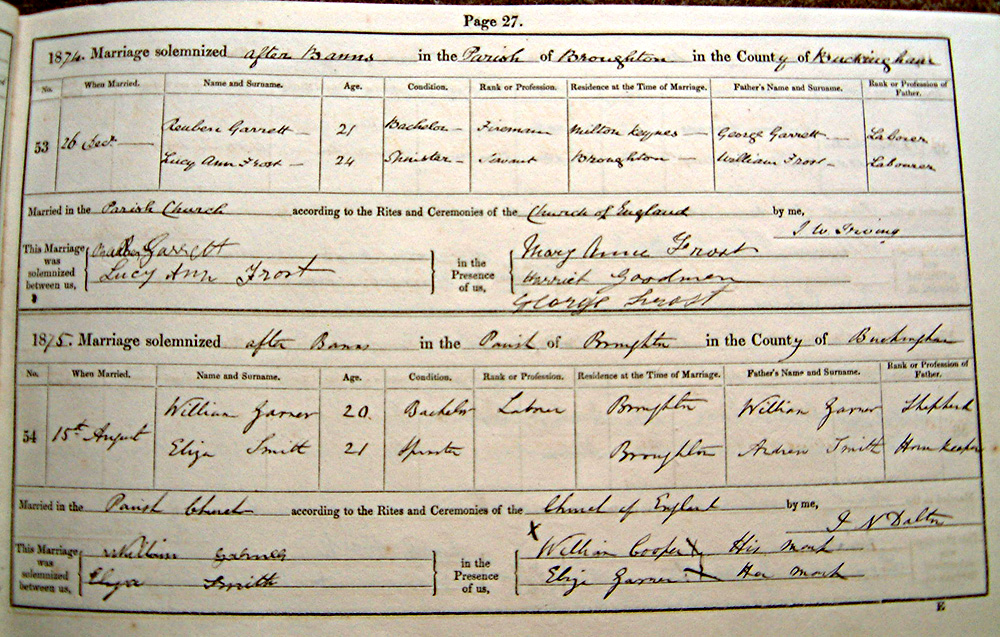 Page 27.
1874. Marriage solemnized after Banns in the Parish of Broughton in the County of Buckingham
No. When Married. Name and Surname. Age. Condition. Rank or Profession. Residence at the Time of Marriage. Father's Name and Surname. Rank or Profession of Father.
53 26 Dec. Reuben Garrett 21 Bachelor Fireman Milton Keynes George Garrett Laborer
Lucy Ann Frost 24 Spinster Servant Broughton William Frost Labourer
Married in the Parish Church according to the Rites and Ceremonies of the Church of England by me,
J. W. Irving
This Marriage was solemnized between us, in the Presence of us,
Garrett Mary Anne Frost
Lucy Ann Frost Harriet Goodman
George Frost
1875. Marriage solemnized after Banns in the Parish of Broughton in the County of Buckingham
No. When Married. Name and Surname. Age. Condition. Rank or Profession. Residence at the Time of Marriage. Father's Name and Surname. Rank or Profession of Father.
54 15th August William Garner 20. Bachelor Labour Broughton William Garner Shepherd
Eliza Smith 21 Spinster Broughton Andrew Smith
Married in the Parish Church according to the Rites and Ceremonies of the Church of England by me,
J N Dalton
This Marriage was solemnized between us, in the Presence of us,
William X William Cooper X His mark
Eliza Smith Eliza Garner X Her mark
E